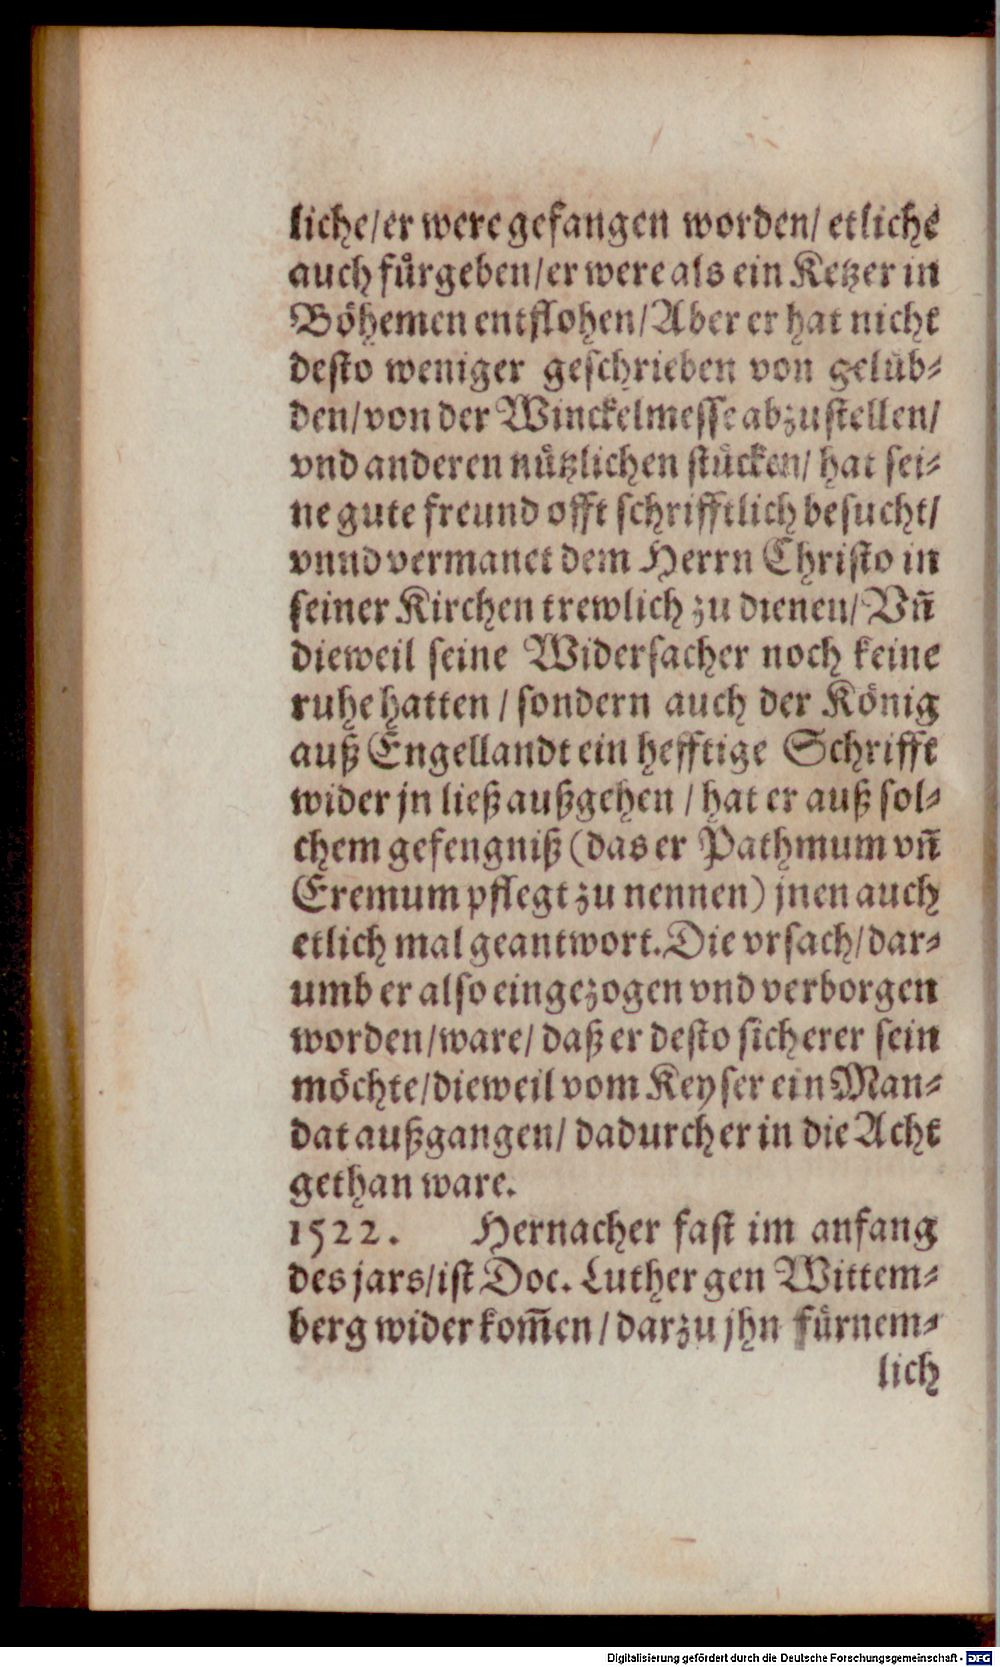 liche/er were gefangen worden/ etliche
auch fürgeben/er were als ein Ketzer in
Böhemen entflohen/Aber er hat nicht
desto weniger geschrieben von gelüb-
den/von der Winckelmesse abzustellen/
vnd anderen nützlichen stücken/ hat sei-
ne gute freund offt schrifftlich besucht/
vnnd vermanet dem Herrn Christo in
seiner Kirchen trewlich zu dienen/Vñ
dieweil seine Widersacher noch keine
ruhe hatten / sondern auch der König
auß Engellandt ein hefftige Schrifft
wider jn ließ außgehen / hat er auß sol-
chem gefengniß (das er Pathmum vñ
Eremum pflegt zu nennen) jnen auch
etlich mal geantwort. Die vrsach/dar-
umb er also eingezogen vnd verborgen
worden/ware/ daß er desto sicherer sein
möchte/dieweil vom Keyser ein Man-
dat außgangen/ dadurch er in die Acht
gethan ware.
1522. Hernacher fast im anfang
des jars/ist Doc. Luther gen Wittem-
berg wider kom̃en/darzu jhn fürnem-
lich
Digitalisierung gefördert durch die Deutsche Forschungsgemeinschaft - DFG